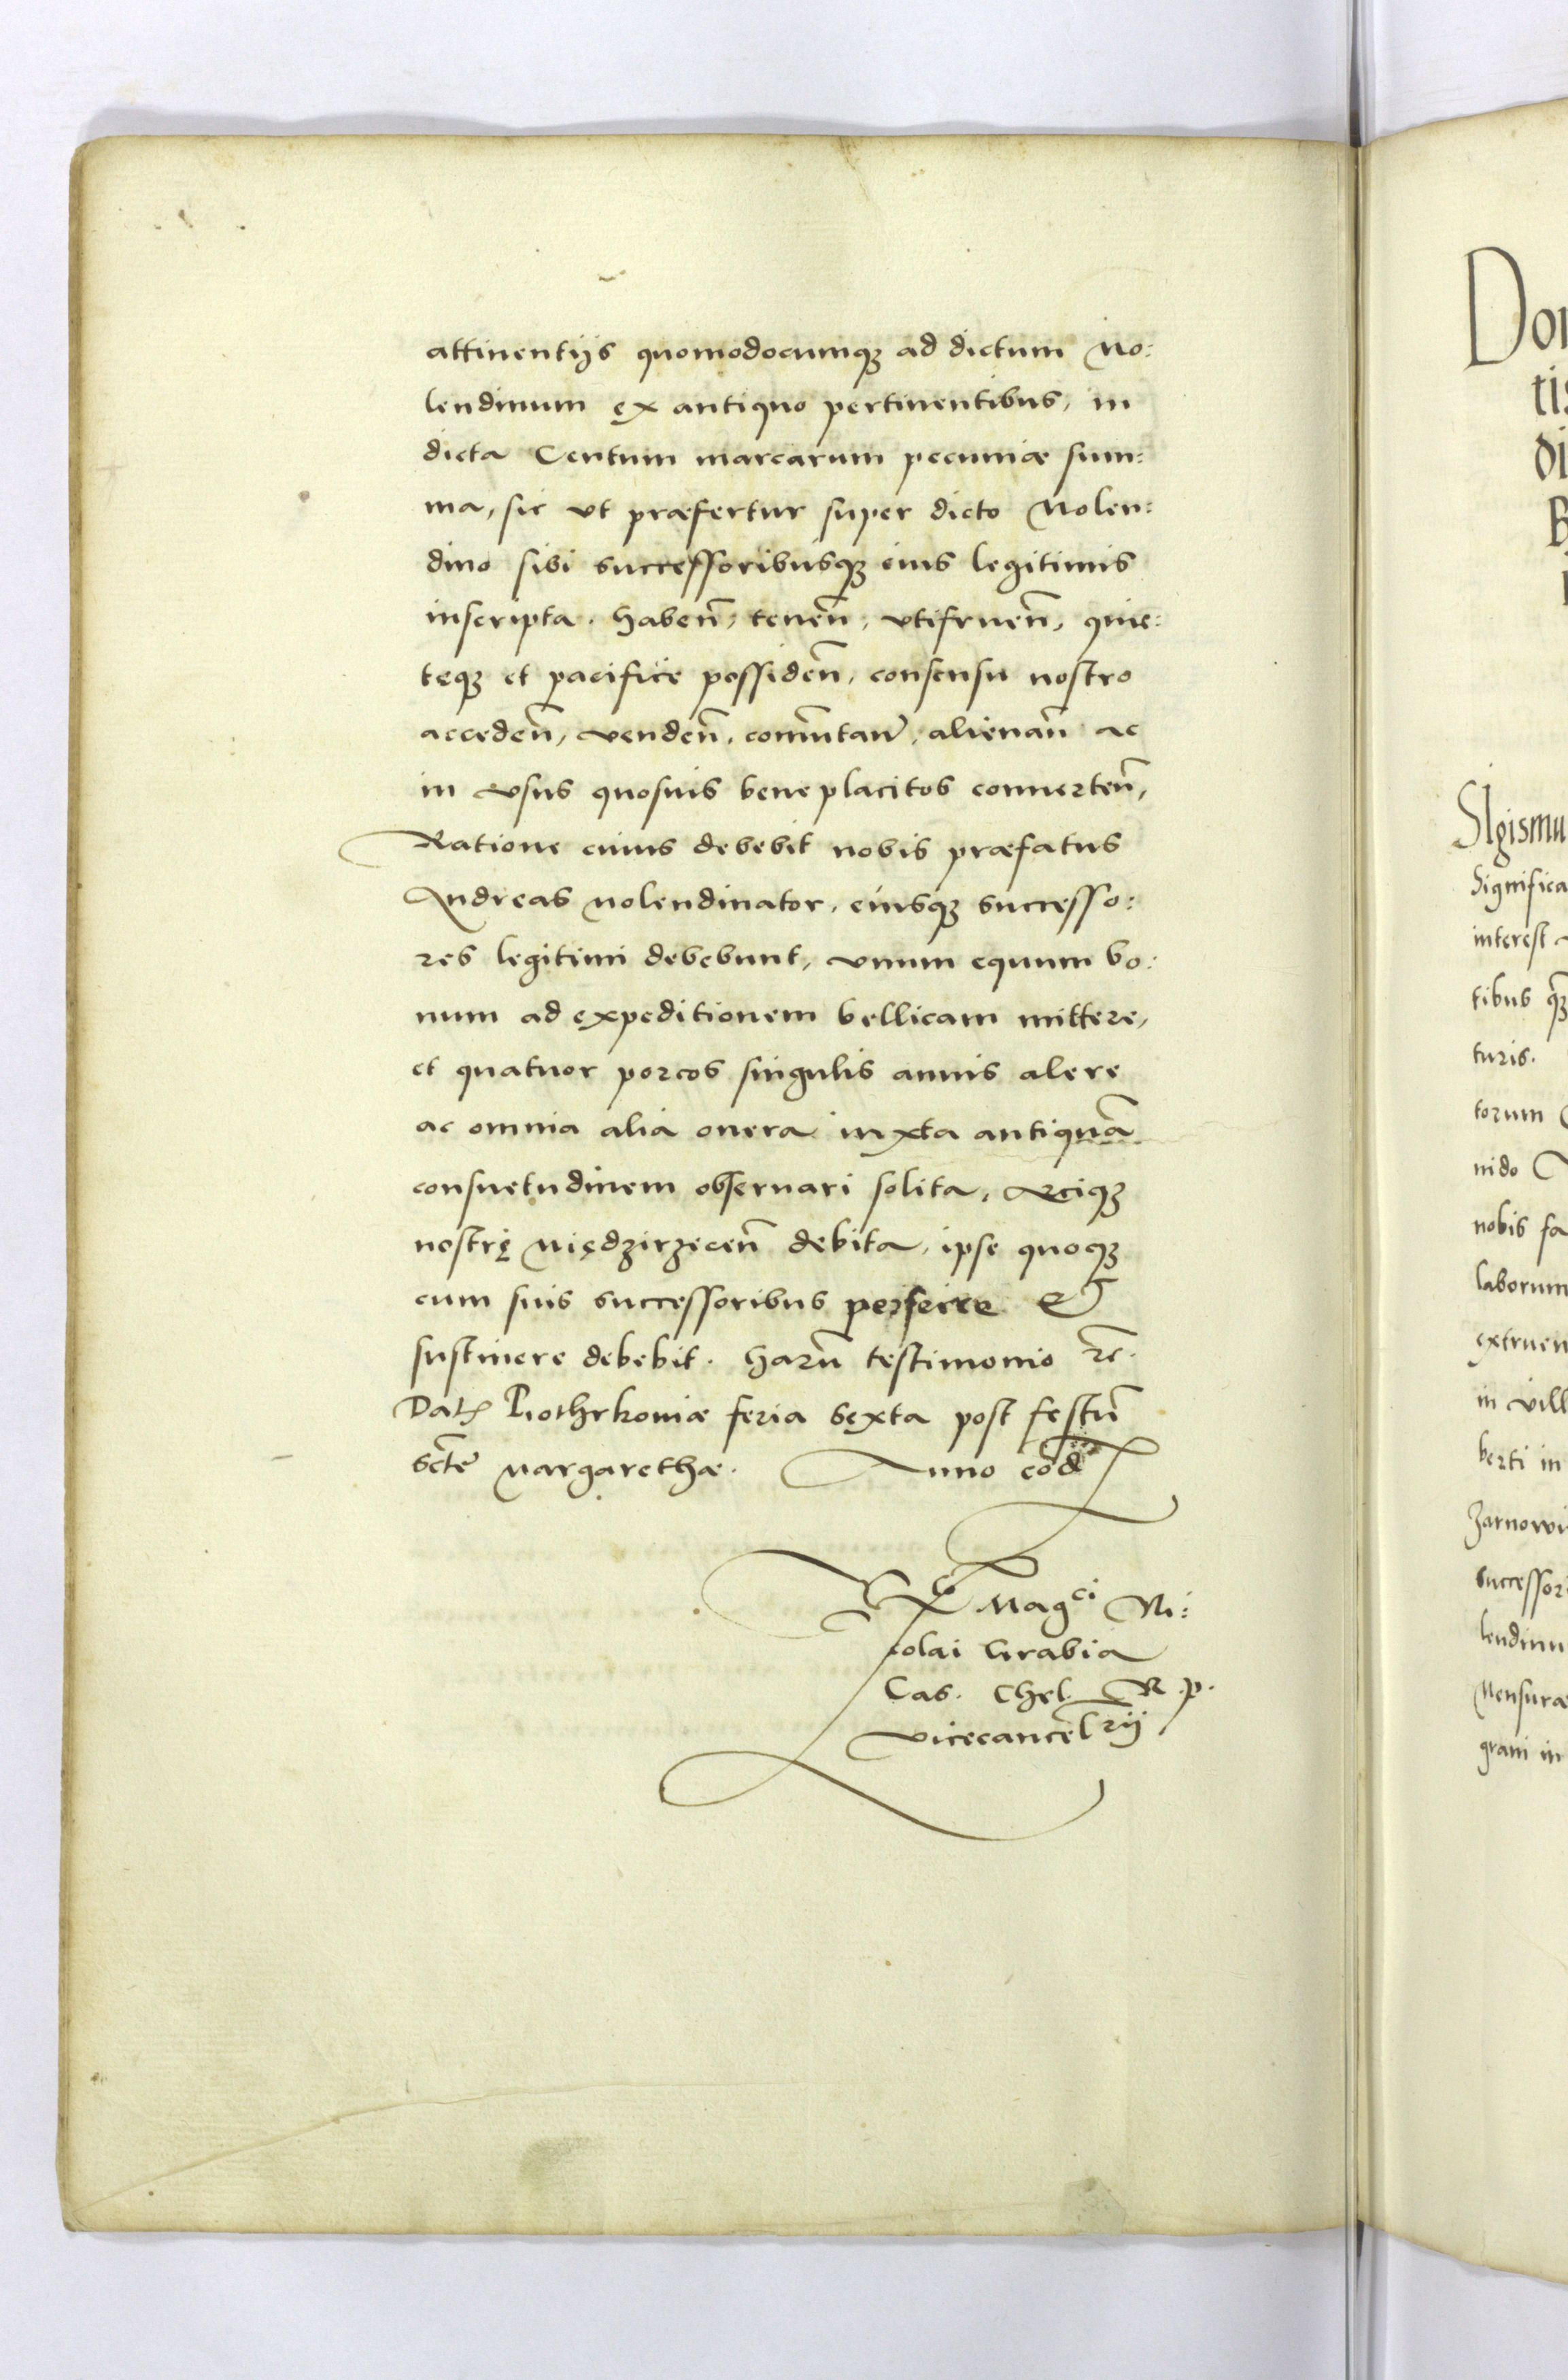 attinentijs quomodocumq₃ ad dictum Mo:
lendinum ex antiquo pertinentibus, in
dicta Centum marcarum pecuniæ sum:
ma, sic vt præfertur super dicto Molen:
dino sibi successoribusq₃ eius legitimis
inscripta. haben̄, tenen̄, vtifruen̄, quie:
teq₃ et pacifice possiden̄, consensu nostro
acceden̄, venden̄, com̄utan̄, alienan̄ ac
in vsus quosuis bene placitos conuerten̄,
Ratione cuius debebit nobis præfatus
Andreas molendinator, eiusq₃ successo:
res legitimi debebunt, vnum equum bo:
num ad expeditionem bellicam mittere,
et quatuor porcos singulis annis alere
ac omnia alia onera iuxta antiquā
consuetudinem obseruari solita, Arciq₃
nostrę Międzirzecen̄ debita, ipse quoq₃
cum suis successoribus perficere &
sustinere debebit. harū testimonio rc̄.
Dat Piothrkoniæ feria sexta post festū
sctē Margarethæ. Anno eōd
Mag^ci Ni:
colai Grabia
Cas. Chel. R. p.
vicecancel^rij
Don
tis
di
B
SIgismu
Significa
interest
tibus q₃
turis.
torum
nido
nobis fa
laborum
extruen
in vill
berti in
Zarnowi
successor
lendinu
Mensuræ
grani in